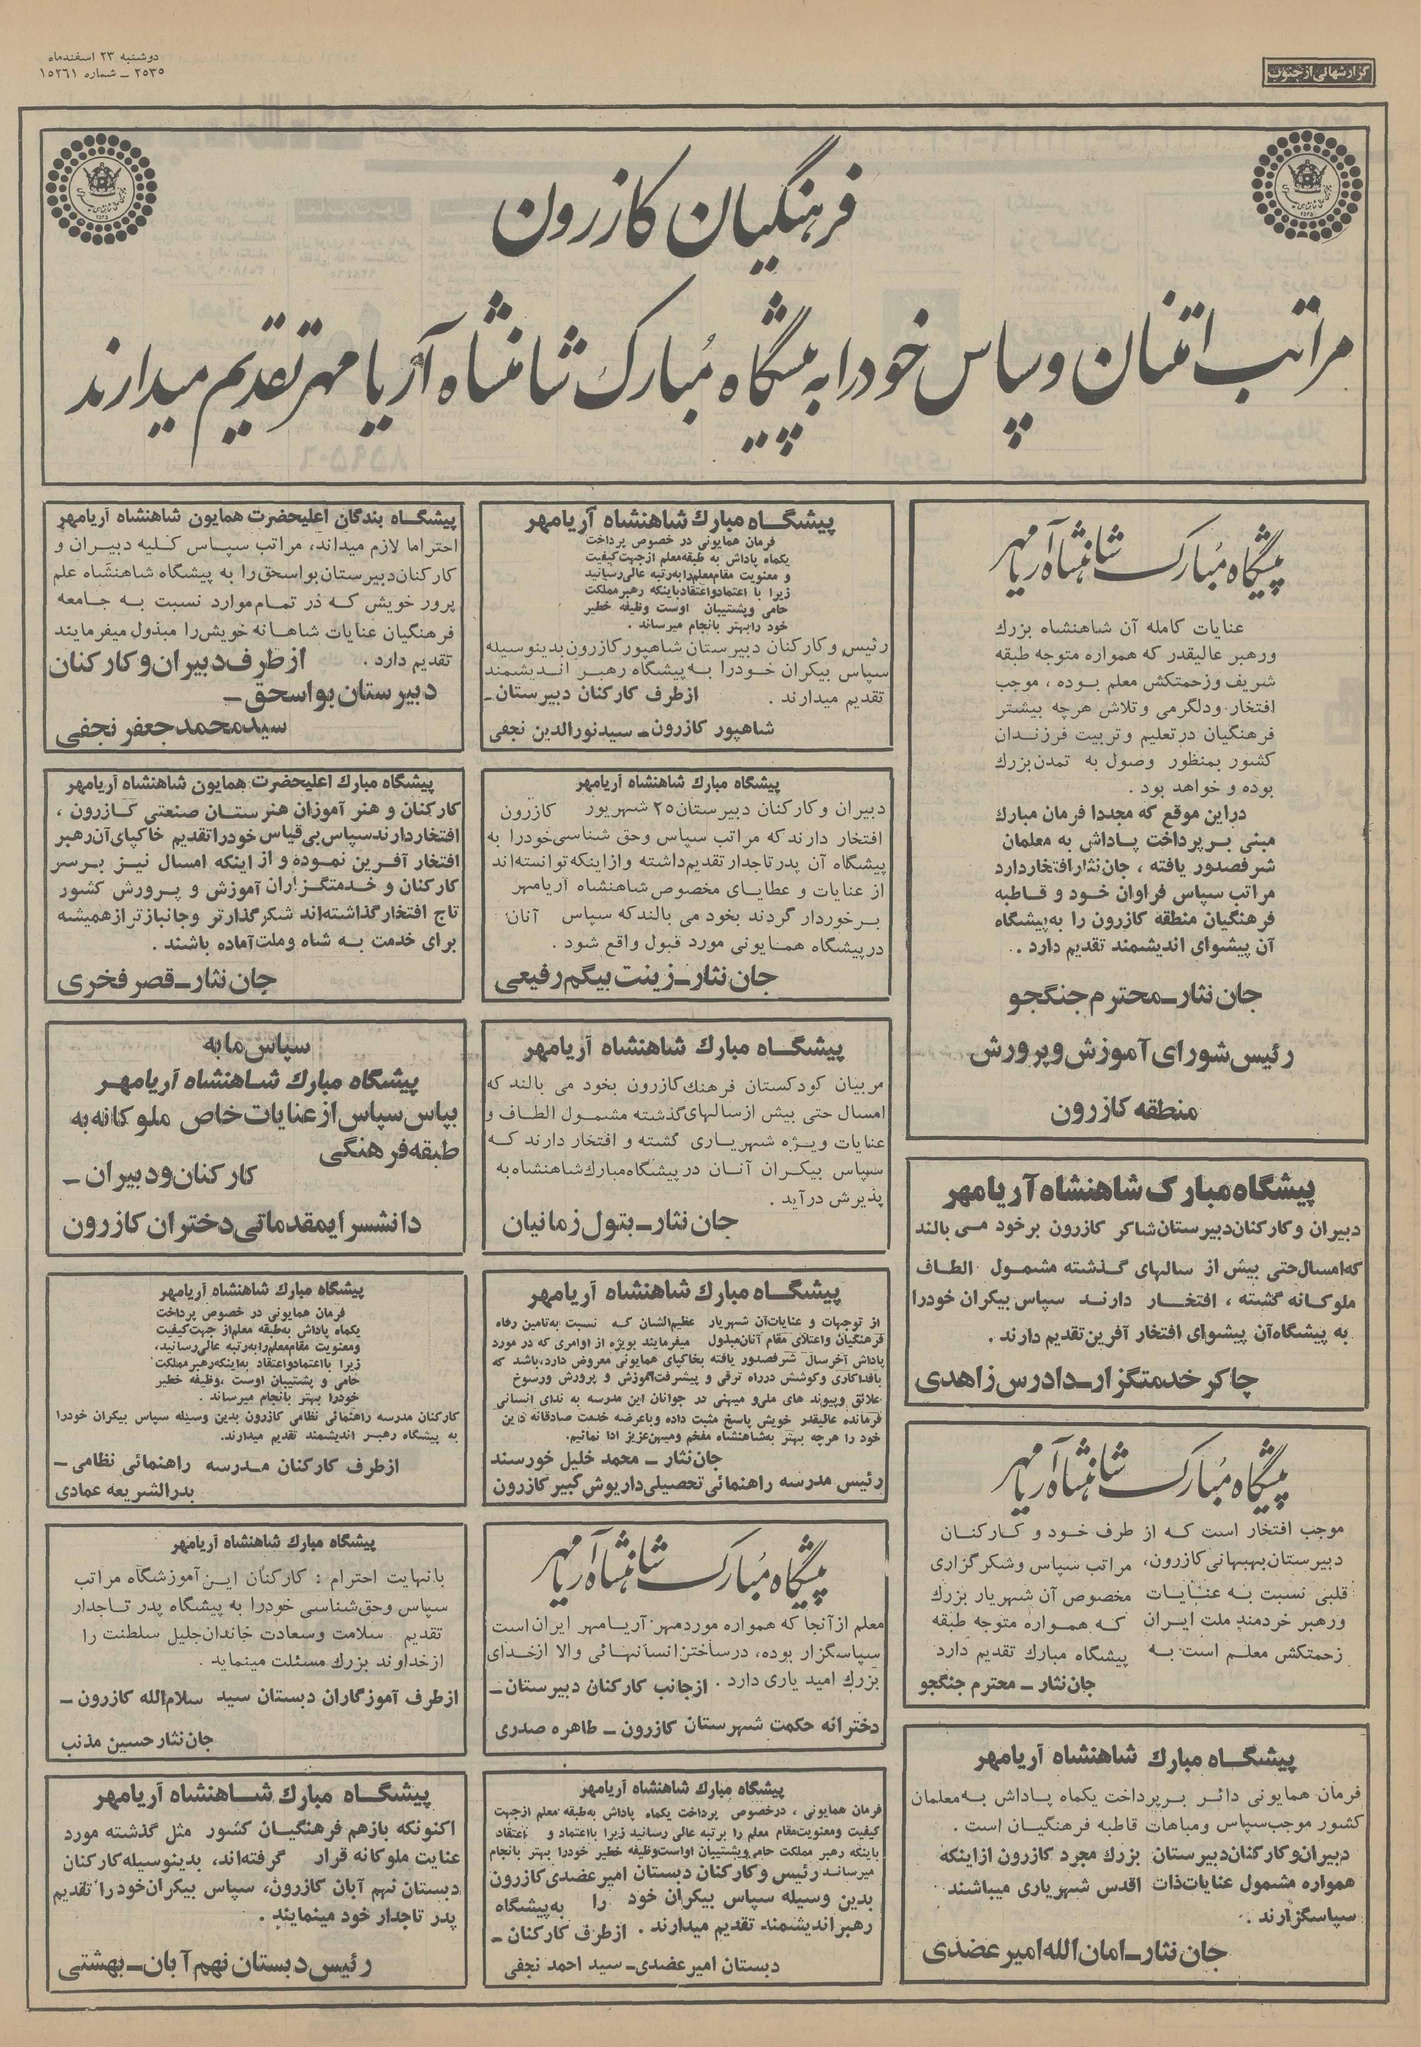 گزارشهائی از جنوب
دوشنبه ۲۳ اسفندماه
۲۵۳۵ ـ شماره ۱۵۲۶۱
فرهنگیان کازرون
مراتب امتنان و سپاس خود را به پیشگاه مبارک شاهنشاه آریامهر تقدیم میدارند
پیشگاه مبارک شاهنشاه آریامهر
عنایات کامله آن شاهنشاه بزرگ
ورهبر عالیقدر که همواره متوجه طبقه
شریف وزحمتکش معلم بوده ، موجب
افتخار ودلگرمی وتلاش هرچه بیشتر
فرهنگیان درتعلیم وتربیت فرزندان
کشور بمنظور وصول به تمدن بزرگ
بوده و خواهد بود .
دراین موقع که مجددا فرمان مبارک
مبنی برپرداخت پاداش به معلمان
شرفصدور یافته ، جان‌نثار افتخاردارد
مراتب سپاس فراوان خود و قاطبه
فرهنگیان منطقه کازرون را به‌پیشگاه
آن پیشوای اندیشمند تقدیم دارد .
جان نثار ـ محترم جنگجو
رئیس شورای آموزش وپرورش
منطقه کازرون
پیشگاه مبارک شاهنشاه آریامهر
دبیران وکارکنان دبیرستان شاکر کازرون برخود می بالند
که‌امسال حتی بیش از سالهای گذشته مشمول الطاف
ملوکانه گشته ، افتخار دارند سپاس بیکران خودرا
به پیشگاه آن پیشوای افتخار آفرین تقدیم دارند .
چاکر خدمتگزار ـ دادرس زاهدی
پیشگاه مبارک شاهنشاه آریامهر
موجب افتخار است که از طرف خود و کارکنان
دبیرستان بهبهانی کازرون، مراتب سپاس وشکرگزاری
قلبی نسبت به عنایات مخصوص آن شهریار بزرگ
ورهبر خردمند ملت ایران که همواره متوجه طبقه
زحمتکش معلم است به پیشگاه مبارک تقدیم دارد
جان نثار ـ محترم جنگجو
پیشگاه مبارک شاهنشاه آریامهر
فرمان همایونی دائر برپرداخت یکماه پاداش به معلمان
کشور موجب سپاس ومباهات قاطبه فرهنگیان است .
دبیران وکارکنان دبیرستان بزرگ مجرد کازرون ازاینکه
همواره مشمول عنایات ذات اقدس شهریاری میباشند
سپاسگزارند .
جان نثار ـ امان‌الله امیرعضدی
پیشگاه مبارک شاهنشاه آریامهر
فرمان همایونی در خصوص پرداخت
یکماه پاداش به طبقه معلم از جهت کیفیت
و معنویت مقام معلم را به رتبه عالی رسانید
زیرا با اعتماد واعتقاد باینکه رهبر مملکت
حامی وپشتیبان اوست وظیفه خطیر
خود رابهتر بانجام میرساند .
رئیس وکارکنان دبیرستان شاهپور کازرون بدینوسیله
سپاس بیکران خودرا به پیشگاه رهبر اندیشمند
تقدیم میدارند . ازطرف کارکنان دبیرستان ـ
شاهپور کازرون ـ سیدنورالدین نجفی
پیشگاه مبارک شاهنشاه آریامهر
دبیران وکارکنان دبیرستان ۲۵ شهریور کازرون
افتخار دارند که مراتب سپاس وحق شناسی خودرا به
پیشگاه آن پدر تاجدار تقدیم داشته وازاینکه توانسته‌اند
از عنایات و عطایای مخصوص شاهنشاه آریامهر
برخوردار گردند بخود می بالند که سپاس آنان
درپیشگاه همایونی مورد قبول واقع شود .
جان نثار ـ زینت بیگم رفیعی
پیشگاه مبارک شاهنشاه آریامهر
مربیان کودکستان فرهنگ کازرون بخود می بالند که
امسال حتی بیش از سالهای گذشته مشمول الطاف و
عنایات ویژه شهریاری گشته و افتخار دارند که
سپاس بیکران آنان درپیشگاه مبارک شاهنشاه به
پذیرش درآید .
جان نثار ـ بتول زمانیان
پیشگاه مبارک شاهنشاه آریامهر
از توجهات و عنایات آن شهریار عظیم‌الشان که نسبت به‌تامین رفاه
فرهنگیان واعتلای مقام آنان مبذول میفرمایند بویژه از اوامری که در مورد
پاداش آخرسال شرفصدور یافته بخاکپای همایونی معروض دارد، باشد که
بافداکاری وکوشش درراه ترقی و پیشرفت آموزش و پرورش ورسوخ
علائق وپیوند های ملی و میهنی در جوانان این مدرسه به ندای انسانی
فرمانده عالیقدر خویش پاسخ مثبت داده وباعرضه خدمت صادقانه دین
خود را هرچه بهتر به‌شاهنشاه مفخم ومیهن عزیز ادا نمائیم.
جان نثار ـ محمد خلیل خورسند
رئیس مدرسه راهنمائی تحصیلی داریوش کبیر کازرون
پیشگاه مبارک شاهنشاه آریامهر
معلم از آنجا که همواره موردمهر آریامهر ایران است
سپاسگزار بوده، درساختن انسانهائی والا ازخدای
بزرگ امید یاری دارد . ازجانب کارکنان دبیرستان ـ
دخترانه حکمت شهرستان کازرون ـ طاهره صدری
پیشگاه مبارک شاهنشاه آریامهر
فرمان همایونی ، درخصوص پرداخت یکماه پاداش به‌طبقه معلم ازجهت
کیفیت ومعنویت مقام معلم را برتبه عالی رسانید زیرا بااعتماد و اعتقاد
باینکه رهبر مملکت حامی وپشتیبان اوست وظیفه خطیر خودرا بهتر بانجام
میرساند رئیس وکارکنان دبستان امیرعضدی کازرون
بدین وسیله سپاس بیکران خود را به‌پیشگاه
رهبر اندیشمند تقدیم میدارند . ازطرف کارکنان ـ
دبستان امیر عضدی ـ سید احمد نجفی
پیشگاه بندگان اعلیحضرت همایون شاهنشاه آریامهر
احتراما لازم میداند، مراتب سپاس کلیه دبیران و
کارکنان دبیرستان بواسحق را به پیشگاه شاهنشاه علم
پرور خویش که در تمام موارد نسبت به جامعه
فرهنگیان عنایات شاهانه خویش را مبذول میفرمایند
تقدیم دارد . ازطرف دبیران وکارکنان
دبیرستان بواسحق ـ
سیدمحمدجعفر نجفی
پیشگاه مبارک اعلیحضرت همایون شاهنشاه آریامهر
کارکنان و هنر آموزان هنرستان صنعتی کازرون ،
افتخاردارند سپاس بی‌قیاس خودرا تقدیم خاکپای آن رهبر
افتخار آفرین نموده و از اینکه امسال نیز برسر
کارکنان و خدمتگزاران آموزش و پرورش کشور
تاج افتخار گذاشته‌اند شکرگذارتر وجانبازتر ازهمیشه
برای خدمت به شاه وملت آماده باشند .
جان نثار ـ قصر فخری
سپاس ما به
پیشگاه مبارک شاهنشاه آریامهر
بپاس سپاس از عنایات خاص ملوکانه به
طبقه فرهنگی
کارکنان ودبیران ـ
دانشسرایمقدماتی دختران کازرون
پیشگاه مبارک شاهنشاه آریامهر
فرمان همایونی در خصوص پرداخت
یکماه پاداش به‌طبقه معلم از جهت کیفیت
ومعنویت مقام معلم را به رتبه عالی رسانید،
زیرا بااعتماد واعتقاد به‌اینکه رهبر مملکت
حامی و پشتیبان اوست ،وظیفه خطیر
خودرا بهتر بانجام میرساند .
کارکنان مدرسه راهنمائی نظامی کازرون بدین وسیله سپاس بیکران خودرا
به پیشگاه رهبر اندیشمند تقدیم میدارند.
ازطرف کارکنان مدرسه راهنمائی نظامی ـ
بدرالشریعه عمادی
پیشگاه مبارک شاهنشاه آریامهر
بانهایت احترام : کارکنان این آموزشگاه مراتب
سپاس وحق‌شناسی خودرا به پیشگاه پدر تاجدار
تقدیم سلامت وسعادت خاندان جلیل سلطنت را
ازخداوند بزرگ مسئلت مینماید .
ازطرف آموزگاران دبستان سید سلام‌الله کازرون ـ
جان نثار حسین مذنب
پیشگاه مبارک شاهنشاه آریامهر
اکنونکه بازهم فرهنگیان کشور مثل گذشته مورد
عنایت ملوکانه قرار گرفته‌اند، بدینوسیله کارکنان
دبستان نهم آبان کازرون، سپاس بیکران خودرا تقدیم
پدر تاجدار خود مینمایند .
رئیس دبستان نهم آبان ـ بهشتی